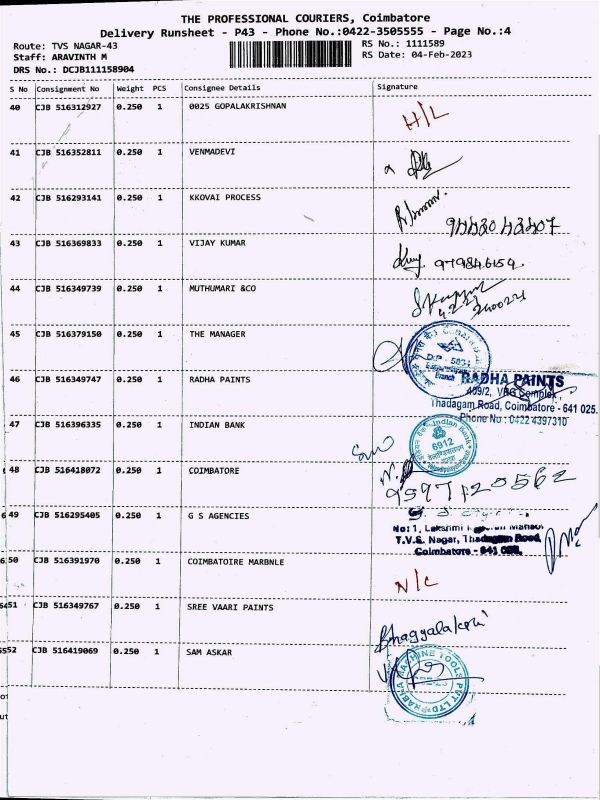 THE PROFESSIONAL COURIERS, Coimbatore
Delivery Runsheet - P43 - Phone No.:0422-3505555 - Page No.:4
Route: TVS NAGAR-43 RS No.: 1111589
Staff: ARAVINTH M RS Date: 04-Feb-2023
DRS No.: DCJB111158904
S No Consignment No Weight PCS Consignee Details Signature
40 CJB 516312927 0.250 1 0025 GOPALAKRISHNAN H/L
41 CJB 516352811 0.250 1 VENMADEVI
42 CJB 516293141 0.250 1 KKOVAI PROCESS
43 CJB 516369833 0.250 1 VIJAY KUMAR
44 CJB 516349739 0.250 1 MUTHUMARI &CO
45 CJB 516379150 0.250 1 THE MANAGER
46 CJB 516349747 0.250 1 RADHA PAINTS RADHA PAINTS
Complex,
Thadagam Road, Coimbatore - 641 025.
Phone No : 0422 4397310
47 CJB 516396335 0.250 1 INDIAN BANK Indian Bank
6912
48 CJB 516418072 0.250 1 COIMBATORE
9597120562
49 CJB 516295405 0.250 1 G S AGENCIES
No: 1, Lakshmi
T.V.S. Nagar, Thadagam Road,
Coimbatore -
50 CJB 516391970 0.250 1 COIMBATOIRE MARBNLE N/C
51 CJB 516349767 0.250 1 SREE VAARI PAINTS
52 CJB 516419069 0.250 1 SAM ASKAR
MACHINE TOOLS PVT LTD